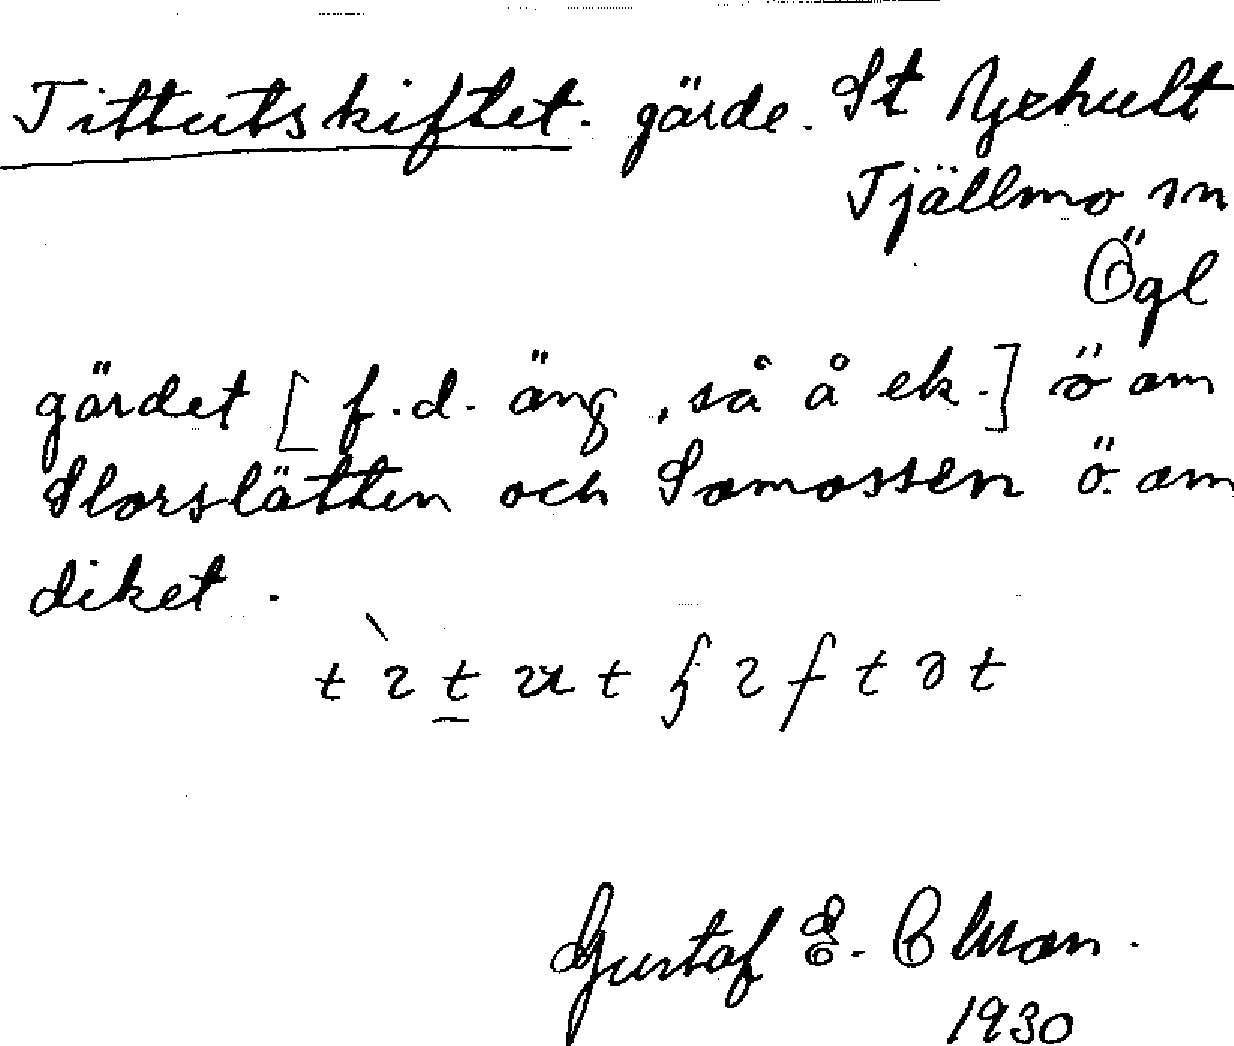 Tittutskiftet. gärde. St Hjehult
Tjällmo sn
Ögl
gärdet [f.d. äng, så å ek.] ö om
Storslätten och Somossen ö. om
diket.
Gustaf E.
1930